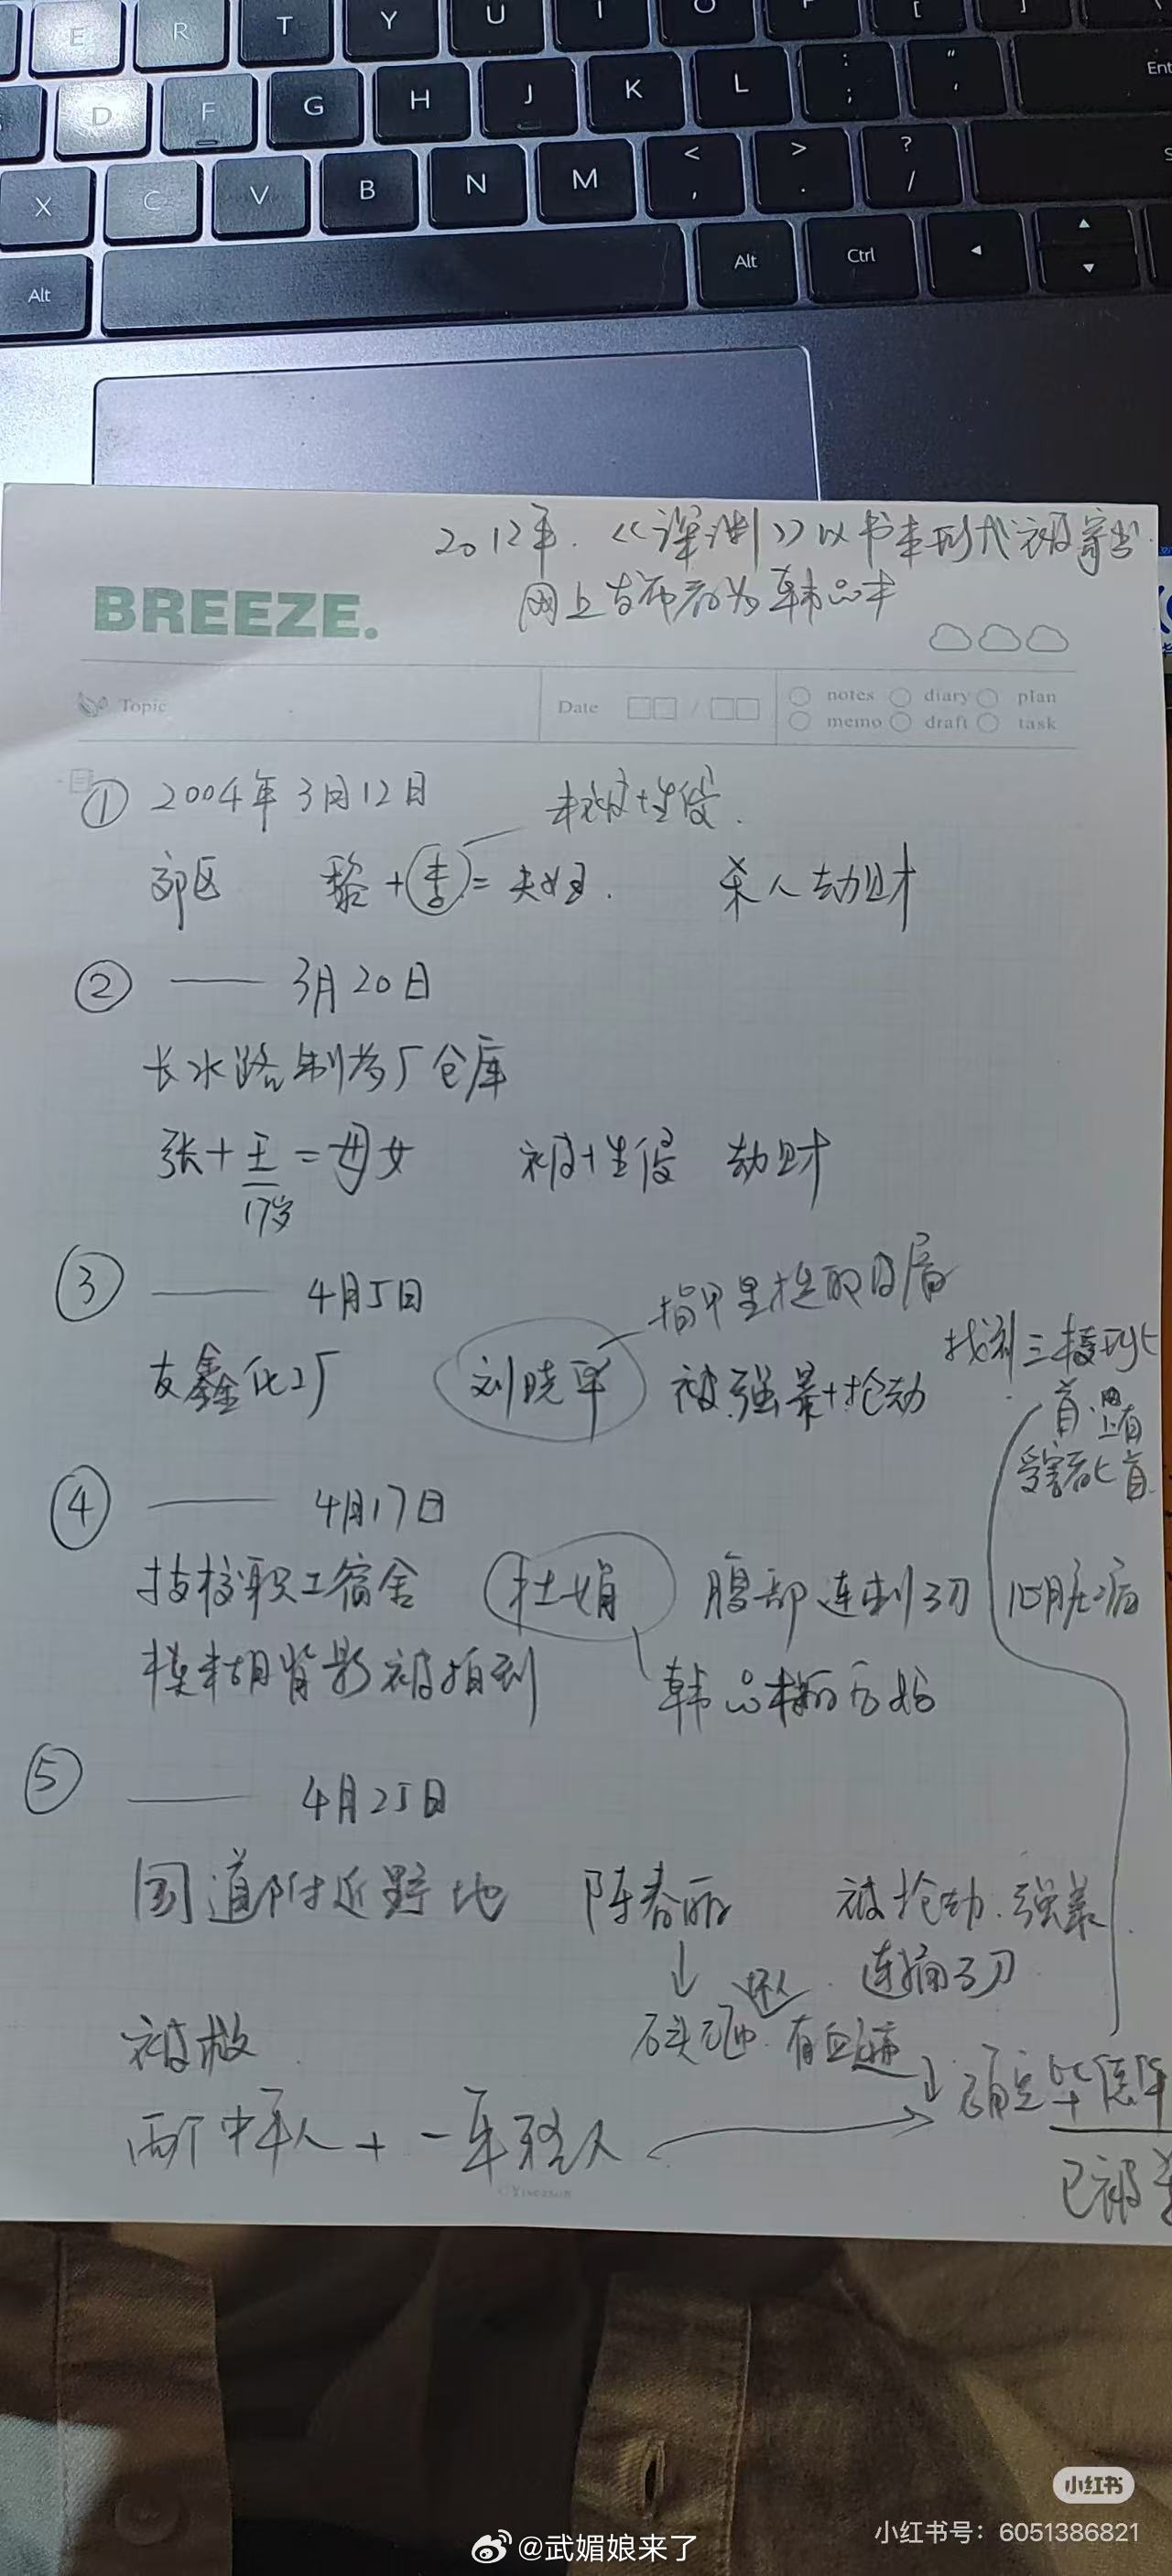 E R T Y U I O P [ ]
D F G H J K L : ; " ' Ent
X C V B N M < , > . ? /
Alt Alt Ctrl
2012年.《深渊》以书本形式被寄出.
网上发布者为韩品
BREEZE.
Topic
Date / notes diary plan
memo draft task
① 2004年3月12日 未被性侵.
郊区 黎+李=夫妇. 杀人劫财
② —— 3月20日
长水路制药厂仓库
张+王=母女 被性侵 劫财
17岁
③ —— 4月5日
指甲里提取皮屑
友鑫化工厂 刘晓军 被强暴+抢劫
找到三棱形匕
首.上有
受害者匕首
④ —— 4月17日
技校职工宿舍 杜娟 腹部连刺3刀 心脏病
模糊背影被拍到 韩品
⑤ —— 4月25日
国道附近野地 陈春丽 被抢劫.强暴.
↓ 坏人. 连捅3刀
被救 石头砸.有血迹
两个中年人+一年轻人 → 确定
已被
Yiseason
小红书
小红书号：6051386821
@武媚娘来了